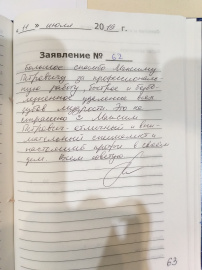 "11" июля 2018 г.
Заявление № 62
Большое спасибо Максиму
Петровичу за профессиональ-
ную работу, быстрое и безбо-
лезненное удаление всех
зубов мудрости. Это не
страшно :) Максим
Петрович отличный и вни-
мательный специалист и
настоящий профи в своём
деле. Всем советую
63